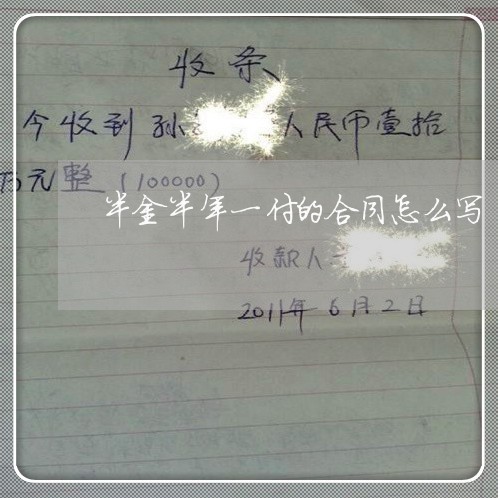 收条
今收到孙 人民币壹拾
万元整(100000)
半金半年一付的合同怎么写
收款人
2011年6月2日